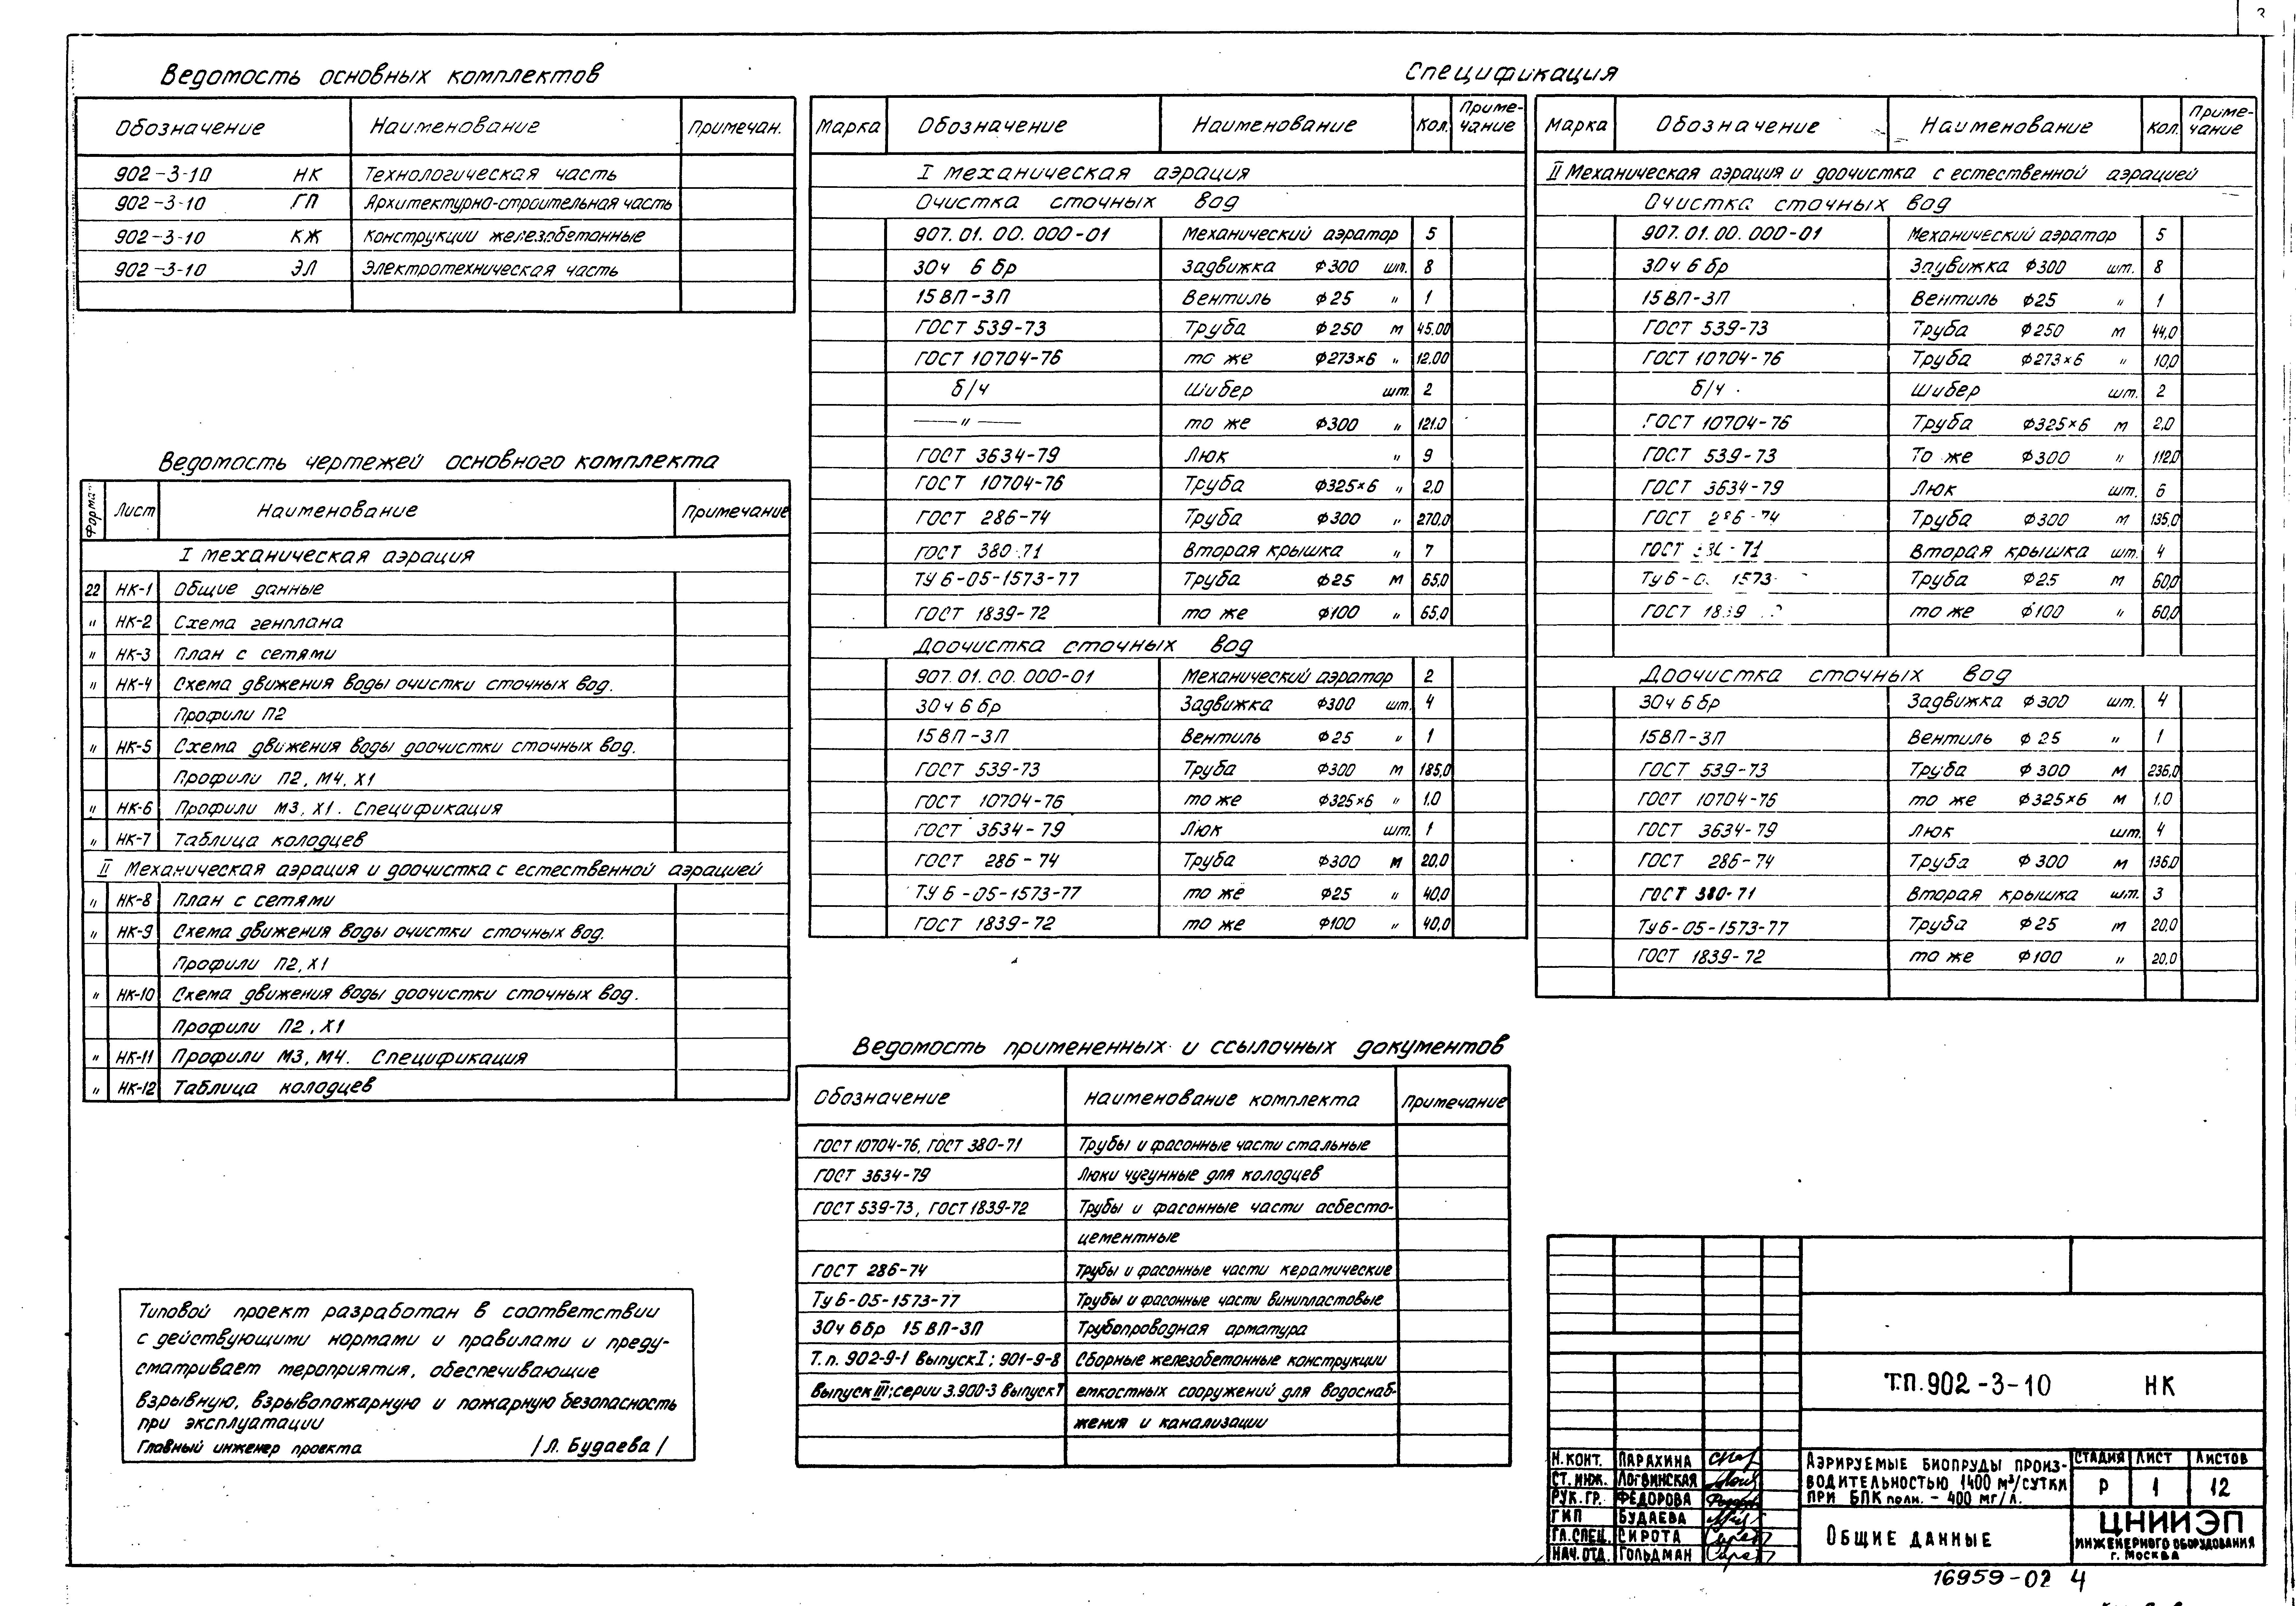 3
Ведомость основных комплектов
Обозначение Наименование Примечан.
902-3-10 НК Технологическая часть
902-3-10 ГП Архитектурно-строительная часть
902-3-10 КЖ Конструкции железобетонные
902-3-10 ЭЛ Электротехническая часть
Ведомость чертежей основного комплекта
Форма- Лист Наименование Примечание
I механическая аэрация
22 НК-1 Общие данные
" НК-2 Схема генплана
" НК-3 План с сетями
" НК-4 Схема движения воды очистки сточных вод.
Профили П2
" НК-5 Схема движения воды доочистки сточных вод.
Профили П2, М4, Х1
" НК-6 Профили М3, Х1. Спецификация
" НК-7 Таблица колодцев
II Механическая аэрация и доочистка с естественной аэрацией
" НК-8 План с сетями
" НК-9 Схема движения воды очистки сточных вод.
Профили П2, Х1
" НК-10 Схема движения воды доочистки сточных вод.
Профили П2, Х1
" НК-11 Профили М3, М4. Спецификация
" НК-12 Таблица колодцев
Типовой проект разработан в соответствии
с действующими нормами и правилами и преду-
сматривает мероприятия, обеспечивающие
взрывную, взрывопожарную и пожарную безопасность
при эксплуатации
Главный инженер проекта /Л. Будаева/
Спецификация
Марка Обозначение Наименование Кол. Приме-
чание
I механическая аэрация
Очистка сточных вод
907.01.00.000-01 Механический аэратор 5
30ч 6 бр Задвижка ф300 шт. 8
15ВП-3П Вентиль ф25 " 1
ГОСТ 539-73 Труба ф250 м 45.00
ГОСТ 10704-76 то же ф273×6 " 12.00
б/ч Шибер шт. 2
—"— то же ф300 " 121.0
ГОСТ 3634-79 Люк " 9
ГОСТ 10704-76 Труба ф325×6 " 2,0
ГОСТ 286-74 Труба ф300 " 270,0
ГОСТ 380-71 Вторая крышка " 7
ТУ 6-05-1573-77 Труба ф25 м 65,0
ГОСТ 1839-72 то же ф100 " 65,0
Доочистка сточных вод
907.01.00.000-01 Механический аэратор 2
30ч 6 бр Задвижка ф300 шт. 4
15ВП-3П Вентиль ф25 " 1
ГОСТ 539-73 Труба ф300 м 185,0
ГОСТ 10704-76 то же ф325×6 " 1.0
ГОСТ 3634-79 Люк шт. 1
ГОСТ 286-74 Труба ф300 м 20,0
ТУ 6-05-1573-77 то же ф25 " 40,0
ГОСТ 1839-72 то же ф100 " 40,0
Марка Обозначение Наименование Кол. Приме-
чание
II Механическая аэрация и доочистка с естественной аэрацией
Очистка сточных вод
907.01.00.000-01 Механический аэратор 5
30ч 6 бр Задвижка ф300 шт. 8
15ВП-3П Вентиль ф25 " 1
ГОСТ 539-73 Труба ф250 м 44,0
ГОСТ 10704-76 Труба ф273×6 " 10,0
б/ч Шибер шт. 2
ГОСТ 10704-76 Труба ф325×6 м 2,0
ГОСТ 539-73 То же ф300 " 112,0
ГОСТ 3634-79 Люк шт. 6
ГОСТ 286-74 Труба ф300 м 135,0
ГОСТ 380-71 Вторая крышка шт. 4
ТУ 6-0 1573- Труба ф25 м 60,0
ГОСТ 1839 то же ф100 " 60,0
Доочистка сточных вод
30ч 6 бр Задвижка ф300 шт. 4
15ВП-3П Вентиль ф25 " 1
ГОСТ 539-73 Труба ф300 м 236,0
ГОСТ 10704-76 то же ф325×6 м 1,0
ГОСТ 3634-79 Люк шт. 4
ГОСТ 286-74 Труба ф300 м 136,0
ГОСТ 380-71 Вторая крышка шт. 3
ТУ6-05-1573-77 Труба ф25 м 20,0
ГОСТ 1839-72 то же ф100 " 20,0
Ведомость примененных и ссылочных документов
Обозначение Наименование комплекта Примечание
ГОСТ 10704-76, ГОСТ 380-71 Трубы и фасонные части стальные
ГОСТ 3634-79 Люки чугунные для колодцев
ГОСТ 539-73, ГОСТ 1839-72 Трубы и фасонные части асбесто-
цементные
ГОСТ 286-74 Трубы и фасонные части керамические
Ту 6-05-1573-77 Трубы и фасонные части винипластовые
30ч 6бр 15ВП-3П Трубопроводная арматура
Т.п. 902-9-1 Выпуск I; 901-9-8 Сборные железобетонные конструкции
Выпуск III; серии 3.900-3 выпуск 7 емкостных сооружений для водоснаб-
жения и канализации
Т.П. 902-3-10 НК
Н.КОНТ. ПАРАХИНА
СТ.ИНЖ. ЛОГВИНСКАЯ
РУК.ГР. ФЕДОРОВА
ГИП БУДАЕВА
ГЛ.СПЕЦ. СИРОТА
НАЧ.ОТД. ГОЛЬДМАН
АЭРИРУЕМЫЕ БИОПРУДЫ ПРОИЗ-
ВОДИТЕЛЬНОСТЬЮ 1400 м³/СУТКИ
ПРИ БПК полн. - 400 мг/л.
СТАДИЯ ЛИСТ ЛИСТОВ
Р 1 12
ОБЩИЕ ДАННЫЕ
ЦНИИЭП
ИНЖЕНЕРНОГО ОБОРУДОВАНИЯ
г. МОСКВА
16959-02 4